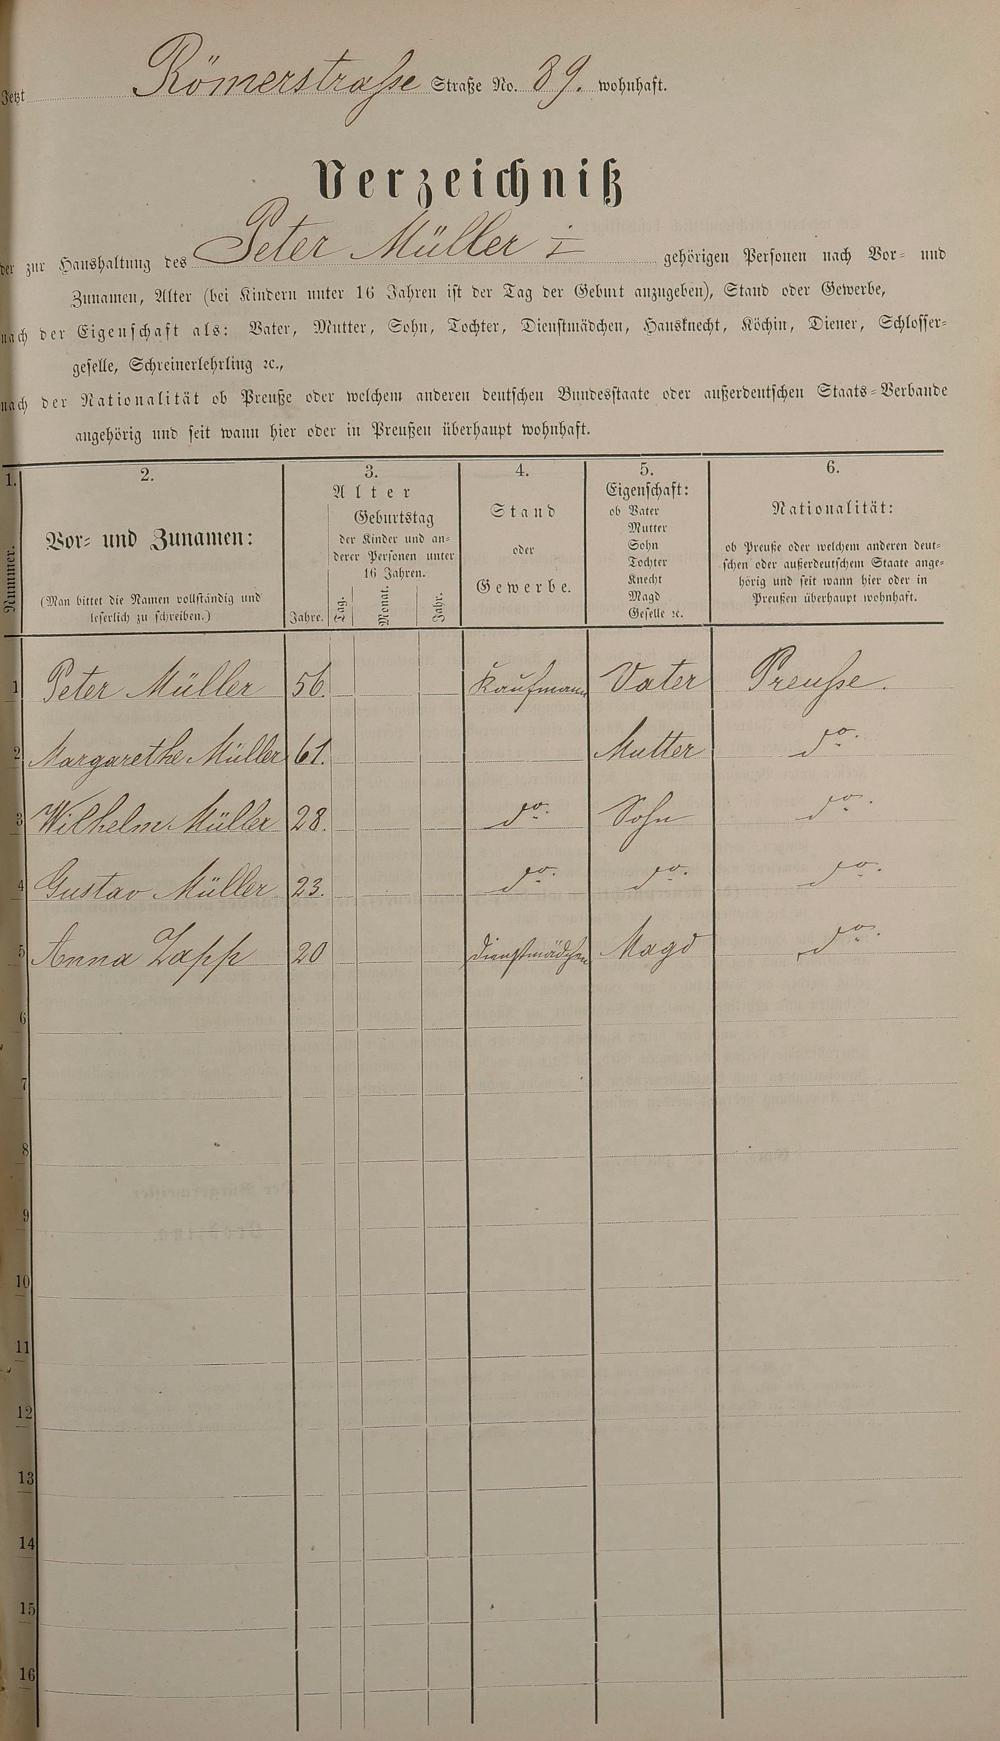 Jetzt Römerstraſse Straße No. 89. wohnhaft.
Verzeichniß
der zur Haushaltung des Peter Müller I gehörigen Personen nach Vor- und
Zunamen, Alter (bei Kindern unter 16 Jahren ist der Tag der Geburt anzugeben), Stand oder Gewerbe,
nach der Eigenschaft als: Vater, Mutter, Sohn, Tochter, Dienstmädchen, Hausknecht, Köchin, Diener, Schlosser-
geselle, Schreinerlehrling ꝛc.,
nach der Nationalität ob Preuße oder welchem anderen deutschen Bundesstaate oder außerdeutschen Staats-Verbande
angehörig und seit wann hier oder in Preußen überhaupt wohnhaft.
1.
Nummer.
2.
Vor- und Zunamen:
(Man bittet die Namen vollständig und
leserlich zu schreiben.)
3.
Alter
Jahre.
Geburtstag
der Kinder und an-
derer Personen unter
16 Jahren.
Tag.
Monat.
Jahr.
4.
Stand
oder
Gewerbe.
5.
Eigenschaft:
ob Vater
Mutter
Sohn
Tochter
Knecht
Magd
Geselle ꝛc.
6.
Nationalität:
ob Preuße oder welchem anderen deut-
schen oder außerdeutschem Staate ange-
hörig und seit wann hier oder in
Preußen überhaupt wohnhaft.
1 Peter Müller 56. Kaufmann Vater Preuſse.
2 Margarethe Müller 61. Mutter do.
3 Wilhelm Müller 28. do. Sohn do.
4 Gustav Müller 23. do. do. do.
5 Anna Zapp 20 Dienstmädchen Magd do.
6
7
8
9
10
11
12
13
14
15
16